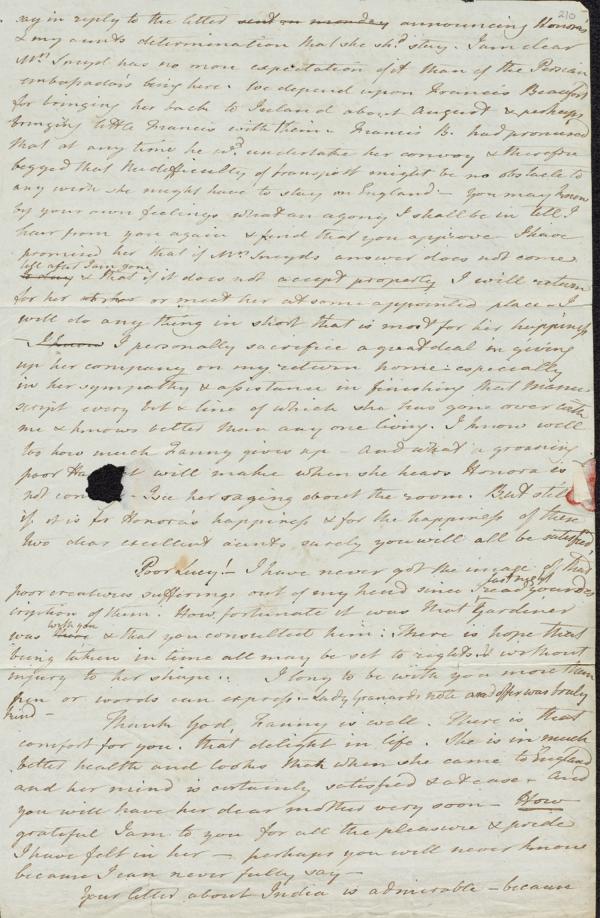 210
say in reply to the letter sent on monday announcing Honora's
& my aunts determination that she shd. stay. I am clear
Mrs. Sneyd has no more expectation of it than of the Persian
embassador's being here. We depend upon Francis Beaufort
for bringing her back to Ireland about August & perhaps
bringing little Francis with them. Francis B. had promised
that at any time he wd. undertake her convoy & therefore
begged that the difficulty of transport might be no obstacle to
any wish she might have to stay in England - You may know
by your own feelings what an agony I shall be in till I
hear from you again & find that you approve. I have
promised her that if Mrs. Sneyds answer does not come
till after I am gone
to day & that if it does not accept properly I will return
for her or meet her at some appointed place - I
will do any thing in short that is most for her happiness
- I know I personally sacrifice a great deal in giving
up her company on my return home - especially
in her sympathy & assistance in finishing that Manu-
script every bit & line of which she has gone over with
me & knows better than any one living. I know well
too how much Fanny gives up - And what a groaning
poor will make when she hears Honora is
not - I see her raging about the room. But still
if it is for Honora's happiness & for the happiness of these
two dear excellent aunts surely you will all be satisfied
Poor Lucy! - I have never got the image of that
poor creatures sufferings out of my head since I read your des
last night
cription of them. How fortunate it was that Gardener
with you
was & that you consulted him. There is hope that
being taken in time all may be set to rights & without
injury to her shape.. I long to be with you more than
pen or words can express - Lady Granards note and offer was truly
kind -
Thank God, Fanny is well. There is that
comfort for you. that delight in life. She is in much
better health and looks than when she came to England
and her mind is certainly satisfied & at ease - And
you will have her dear mother very soon - How
grateful I am to you for all the pleasure & pride
I have felt in her - perhaps you will never know
because I can never fully say -
Your letter about India is admirable - because